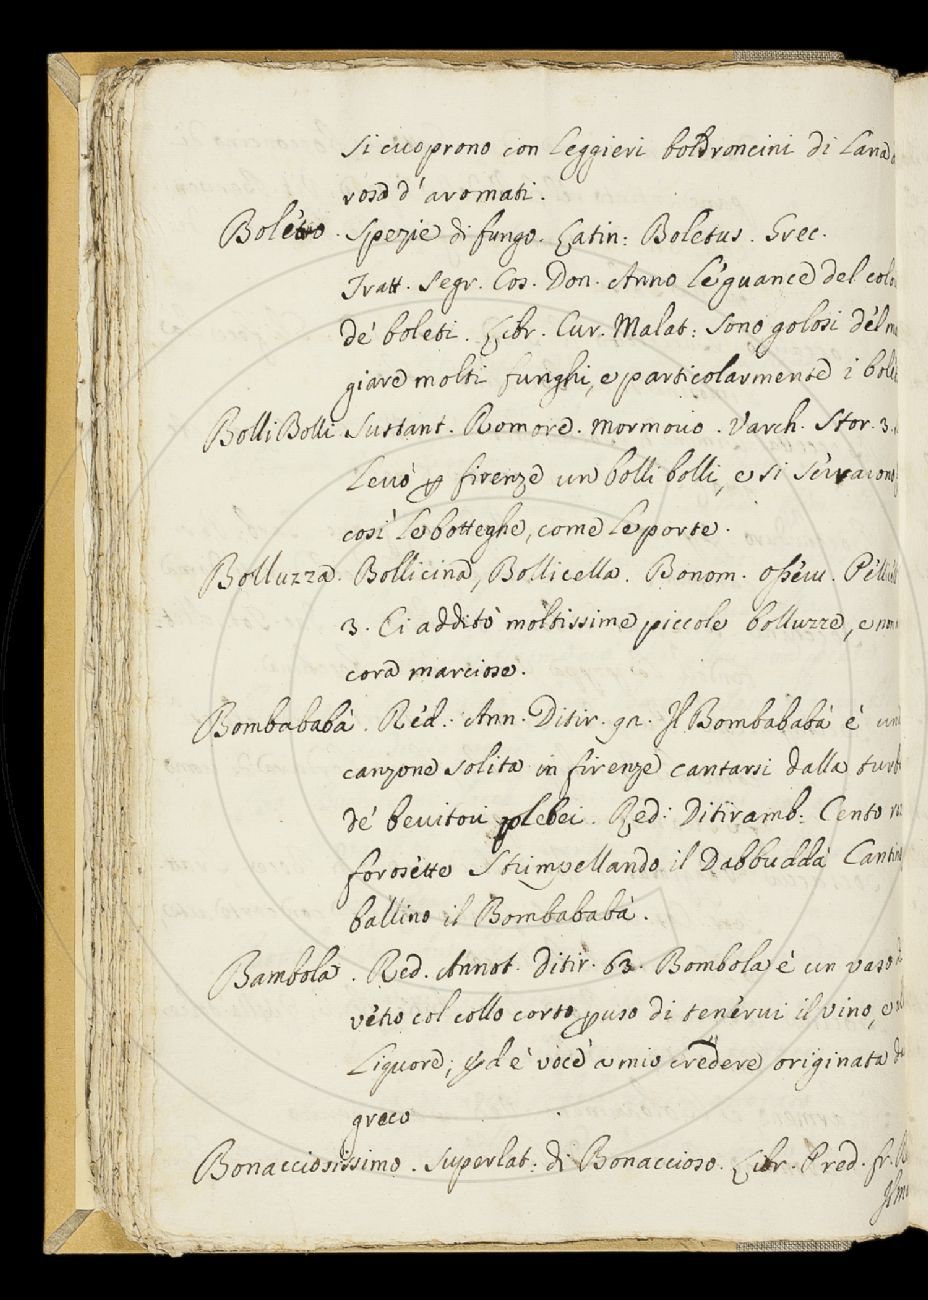 si cuoprono con leggieri boldroncini di Lana
rosa d'aromati.
Boléto. Spezie di fungo. Latin: Boletus. Grec.
Tratt. Segr. Cos. Don. Anno le guance del colo
de' boleti. Libr. Cur. Malat: Sono golosi del m
giare molti funghi, e particolarmente i bole
Bolli Bolli Sustant. Romore. Mormorio. Varch. Stor. 3.
Levò p firenze un bolli bolli, e si serrarono
così le botteghe, come le porte.
Bolluzza. Bollicina, Bollicella. Bonom. osserv. Pellic
3. Ci additò moltissime piccole bolluzze, e non
cora marciose.
Bombababà. Red.: Ann. Ditir. 92. Il Bombababà è una
canzone solita in firenze cantarsi dalla turb
de' bevitori plebei. Red: Ditiramb: Cento
forosette Strimpellando il Dabbuddà Cantin
ballino il Bombababà.
Bambola. Red. Annot. Ditir. 63. Bombola è un vaso di
vetro col collo corto p uso di tenervi il vino, e
Liquore; è voce a mio credere originata da
greco
Bonacciosissimo. Superlat: di Bonaccioso. Libr. Pred. fr.